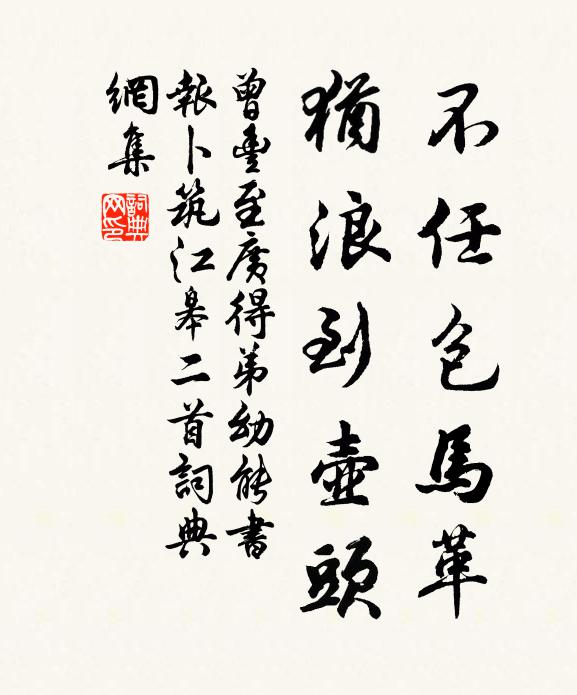 不任包馬革
猶浪到壺頭
曾豐至廣得弟幼能書
報卜筑江皋二首詞典
網集
詞典
网印